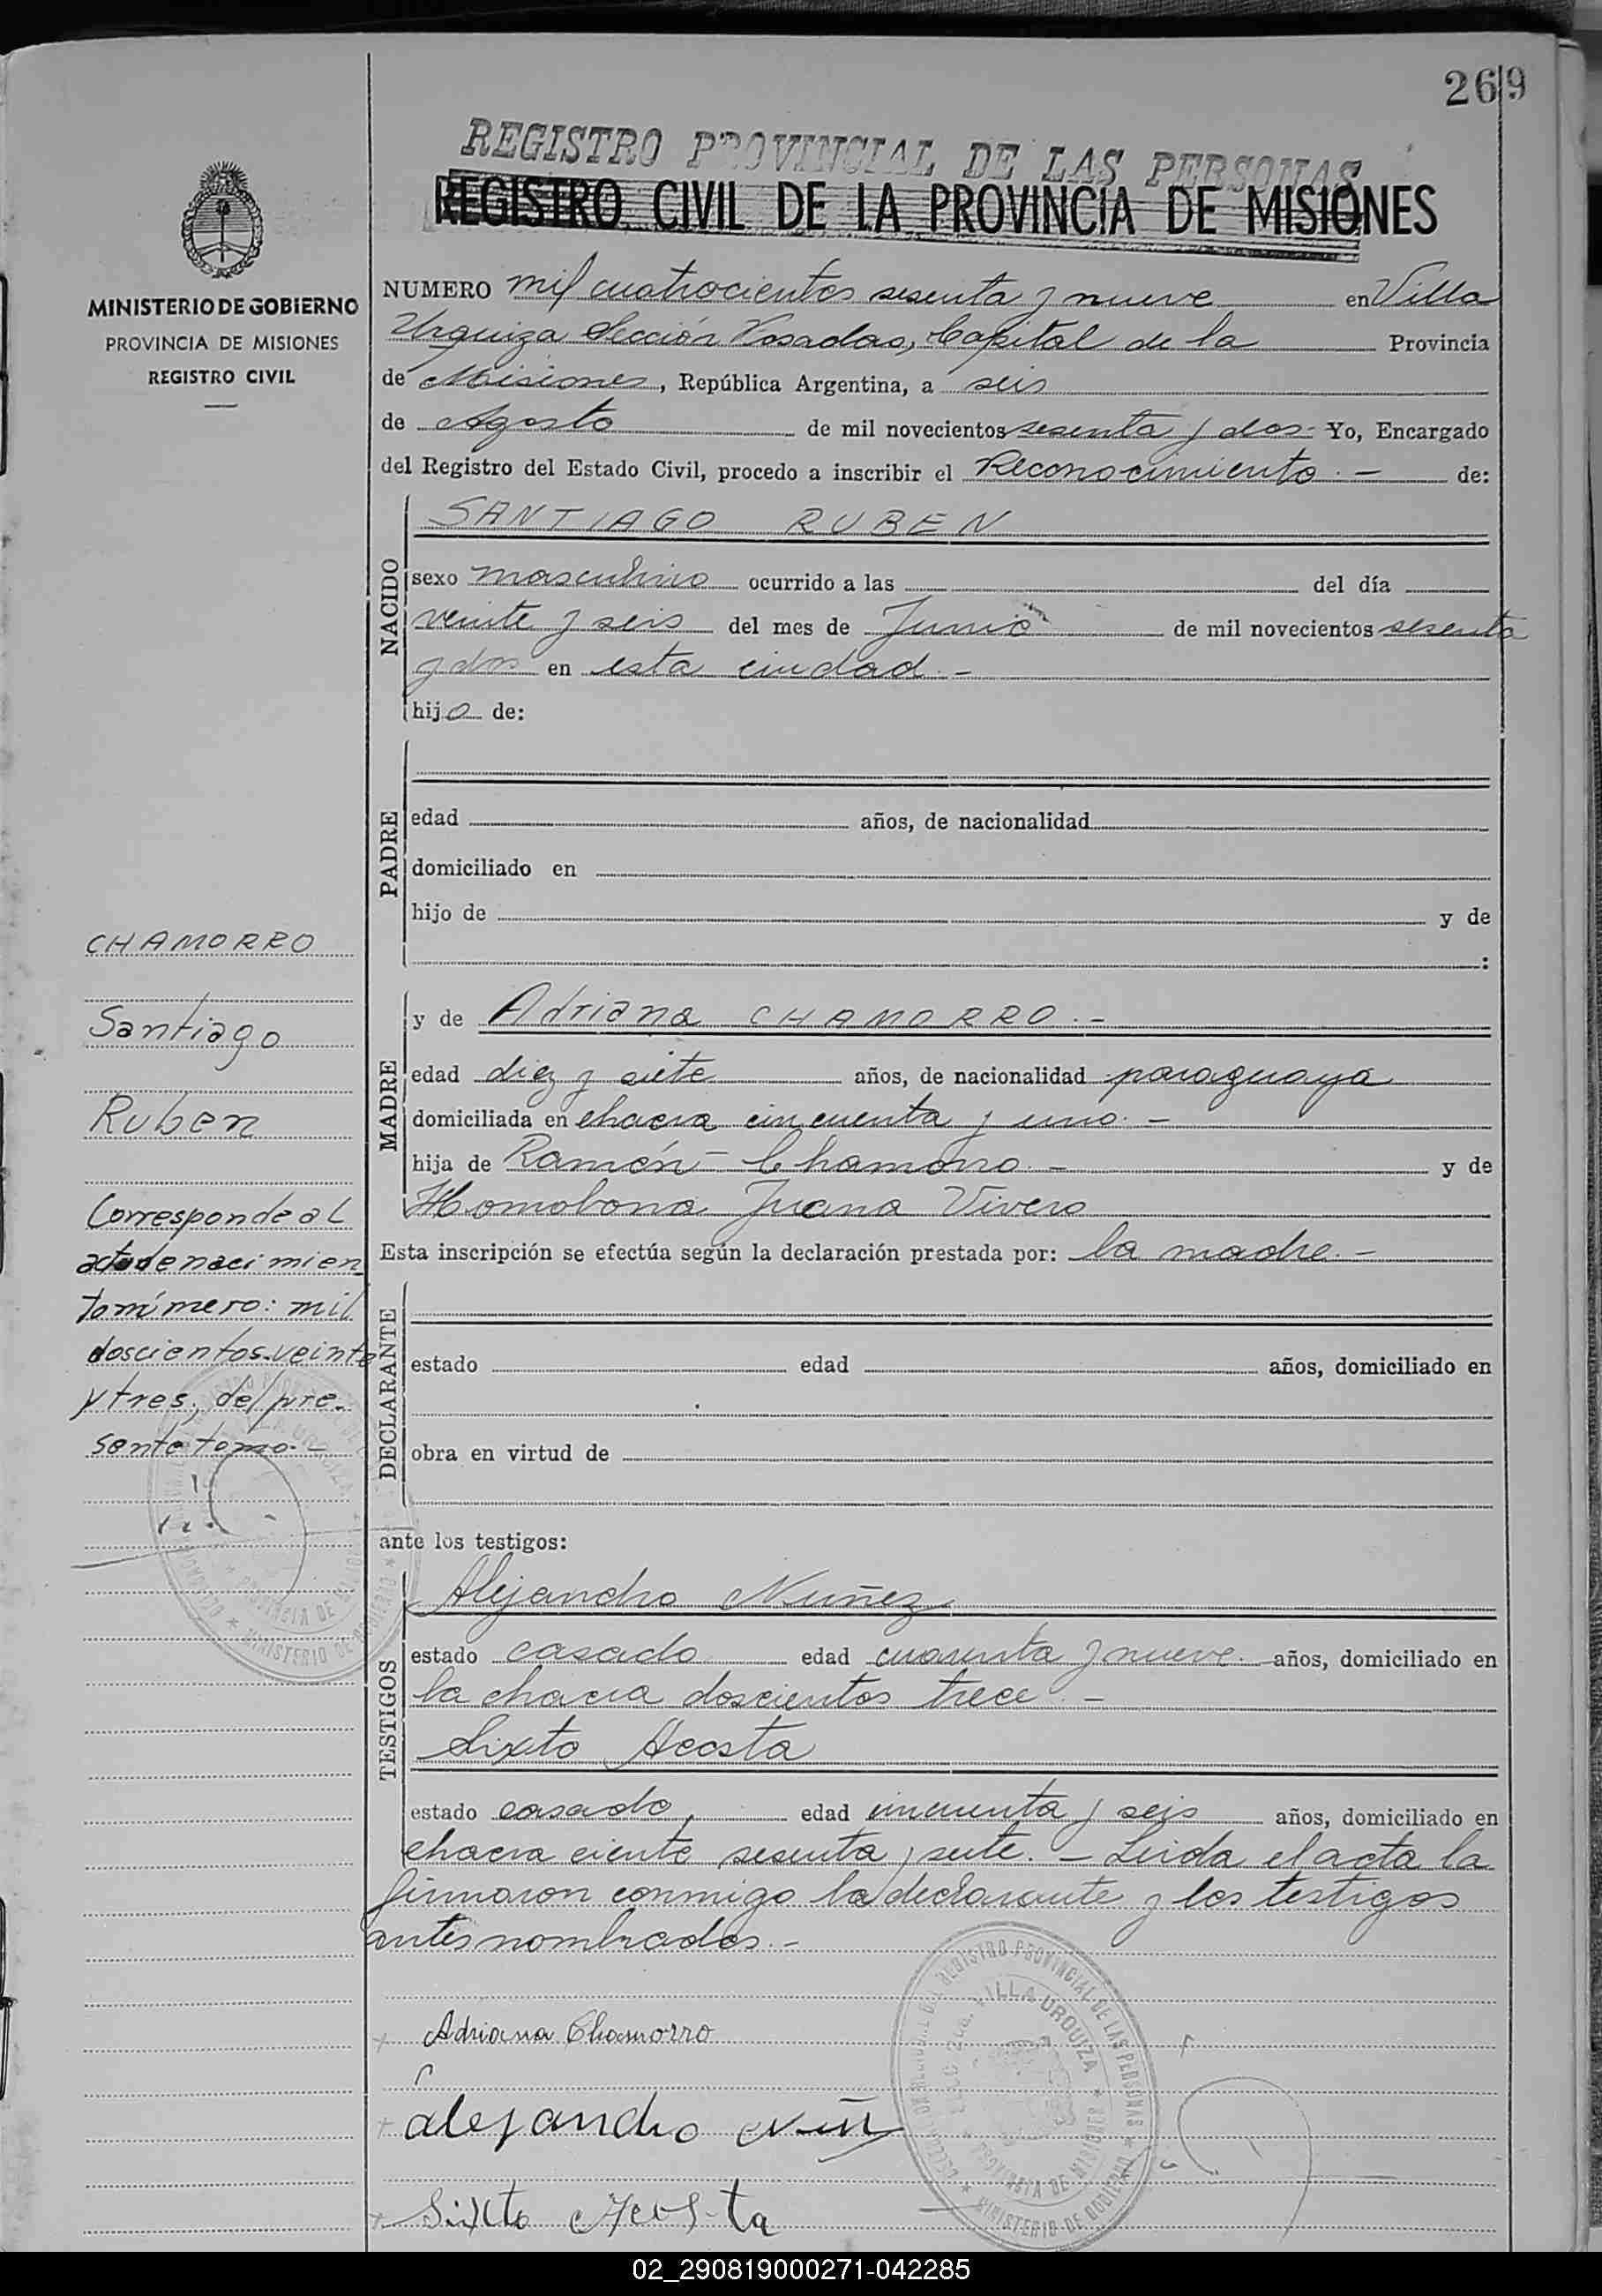 269
REGISTRO PROVINCIAL DE LAS PERSONAS
REGISTRO CIVIL DE LA PROVINCIA DE MISIONES
MINISTERIO DE GOBIERNO
PROVINCIA DE MISIONES
REGISTRO CIVIL
NUMERO mil cuatrocientos sesenta y nueve en Villa
Urquiza Sección Posadas, Capital de la Provincia
de Misiones, República Argentina, a seis
de Agosto de mil novecientos sesenta y dos- Yo, Encargado
del Registro del Estado Civil, procedo a inscribir el Reconocimiento.- de:
NACIDO
SANTIAGO RUBEN
sexo masculino ocurrido a las del día
veinte y seis del mes de Junio de mil novecientos sesenta
y dos en esta ciudad.-
hijo de:
PADRE
edad años, de nacionalidad
domiciliado en
hijo de y de
:
MADRE
y de Adriana CHAMORRO.-
edad diez y siete años, de nacionalidad paraguaya
domiciliada en chacra cincuenta y uno.-
hija de Ramón Chamorro.- y de
Homobona Juana Vivero
Esta inscripción se efectúa según la declaración prestada por: la madre.-
DECLARANTE
estado edad años, domiciliado en
obra en virtud de
ante los testigos:
TESTIGOS
Alejandro Nuñez
estado casado edad cuarenta y nueve. años, domiciliado en
la chacra doscientos trece.-
Sixto Acosta
estado casado, edad cincuenta y seis años, domiciliado en
chacra ciento sesenta y siete.- Leida el acta la
firmaron conmigo la declarante y los testigos
antes nombrados.-
CHAMORRO
Santiago
Ruben
Corresponde al
acta de nacimien
to número: mil
doscientos veinte
y tres, del pre-
sente tomo.-
Adriana Chamorro
alejandro Nuñ
Sixto Acosta
REGISTRO PROVINCIAL DE LAS PERSONAS
VILLA URQUIZA
PROVINCIA DE MISIONES
MINISTERIO DE GOBIERNO
02_290819000271-042285